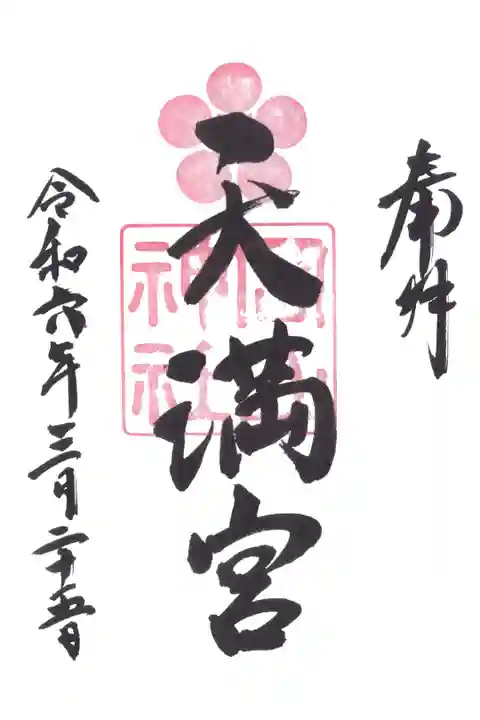 奉拜
天満宮
神社
令和六年三月二十五日